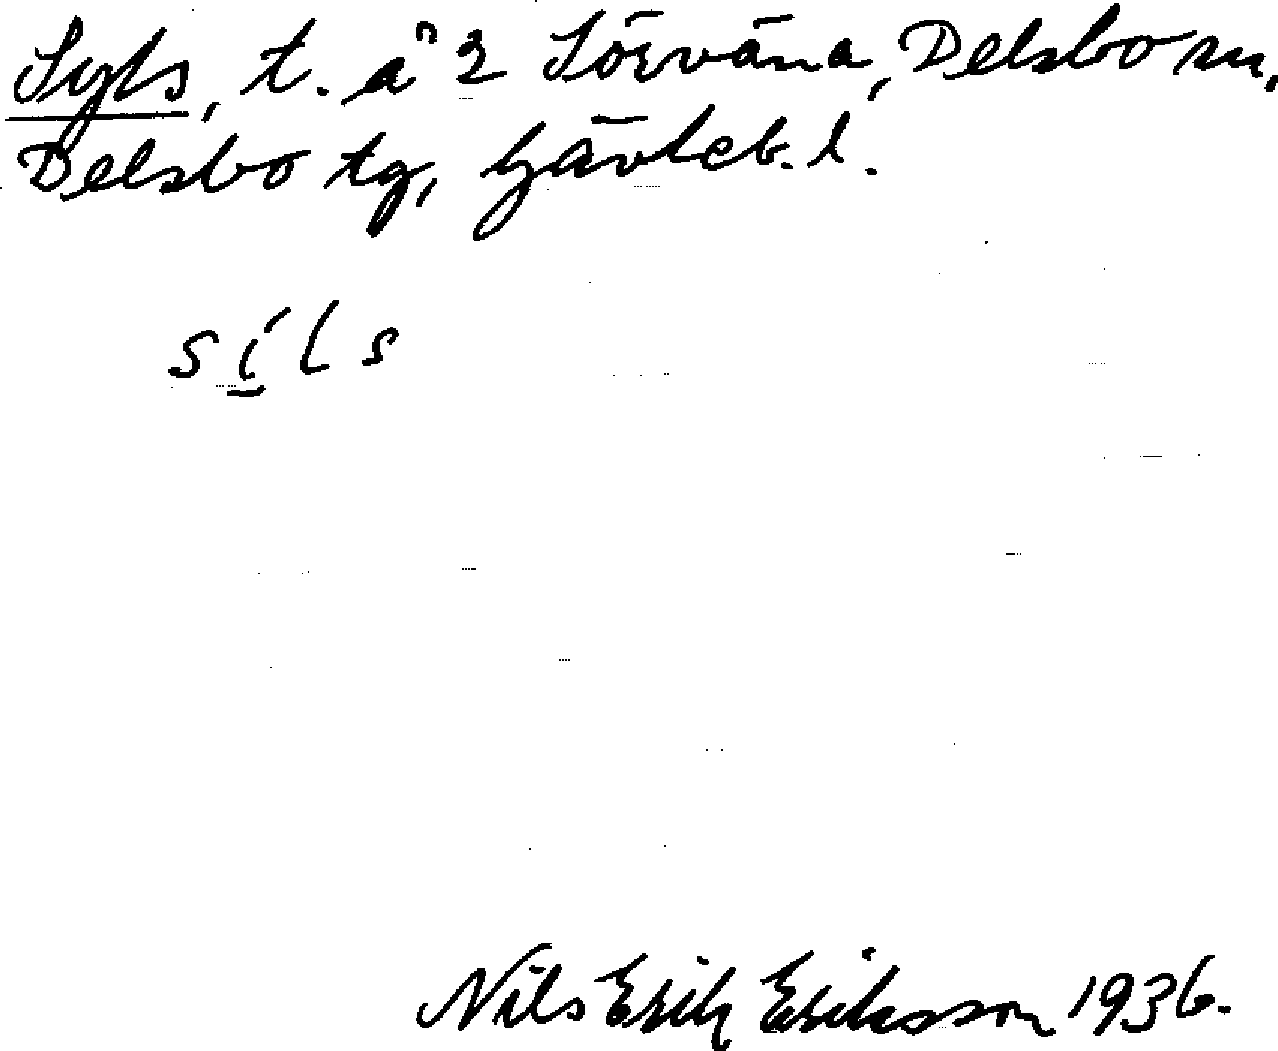 Syls, t. å 2 Sörväna, Delsbo sn,
Delsbo tg, Gävleb. l.
síls
Nils Erik Eriksson 1936.